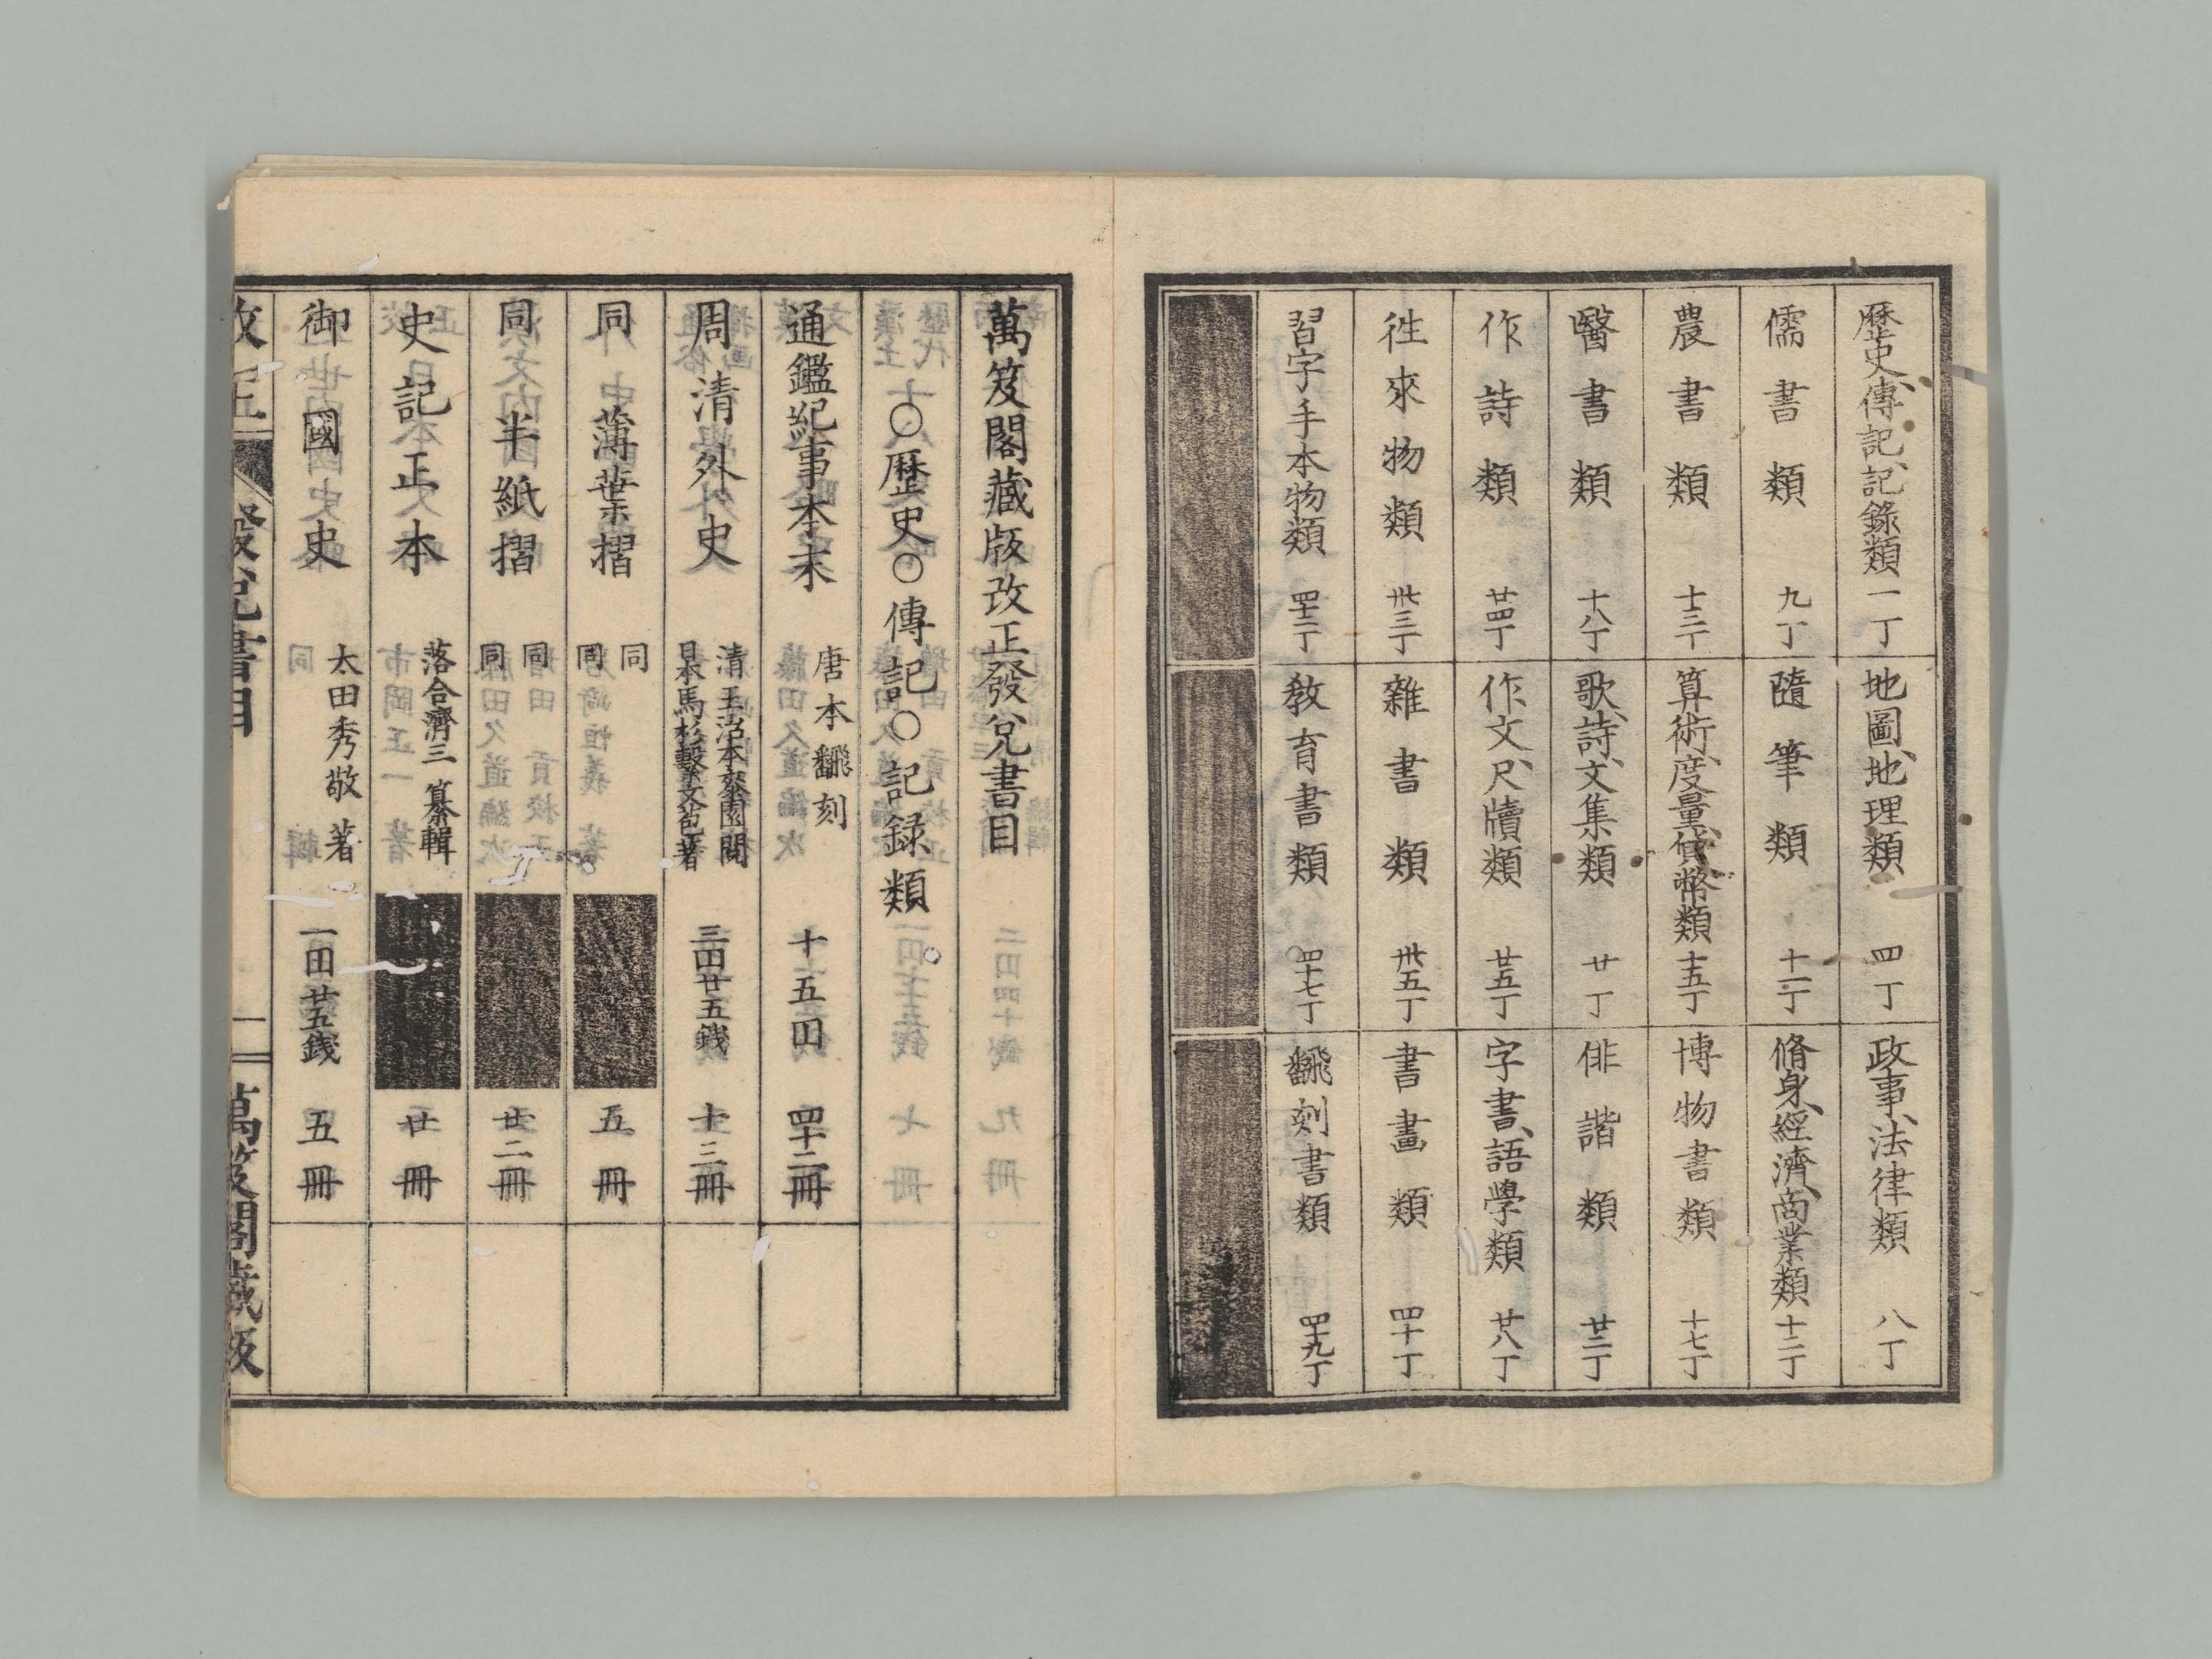 歴史、傳記、記錄類 一丁
地圖、地理類 四丁
政事、法律類 八丁
儒書類 九丁
隨筆類 十一丁
脩身、經濟、商業類 十二丁
農書類 十三丁
算術、度量、貨幣類 十五丁
博物書類 十七丁
醫書類 十八丁
歌、詩、文集類 廿丁
俳諧類 廿二丁
作詩類 廿四丁
作文、尺牘類 廿五丁
字書、語學類 廿八丁
徃來物類 卅三丁
雜書類 卅五丁
書畫類 四十丁
習字手本物類 四十二丁
教育書類 四十七丁
飜刻書類 四十九丁
萬笈閣藏版改正發兌書目
○歴史○傳記○記録類
通鑑紀事本末 唐本飜刻 十五円 四十二冊
周清外史 清王治本桼園閲 日本馬杉繋文苞著 三円廿五錢 十三冊
同薄葉摺 同 同 五冊
同半紙摺 同 同 廿二冊
史記正本 落合濟三纂輯 廿冊
御國史 太田秀敬著 一円廿五錢 五冊
改正發兌書目 一 萬笈閣藏版